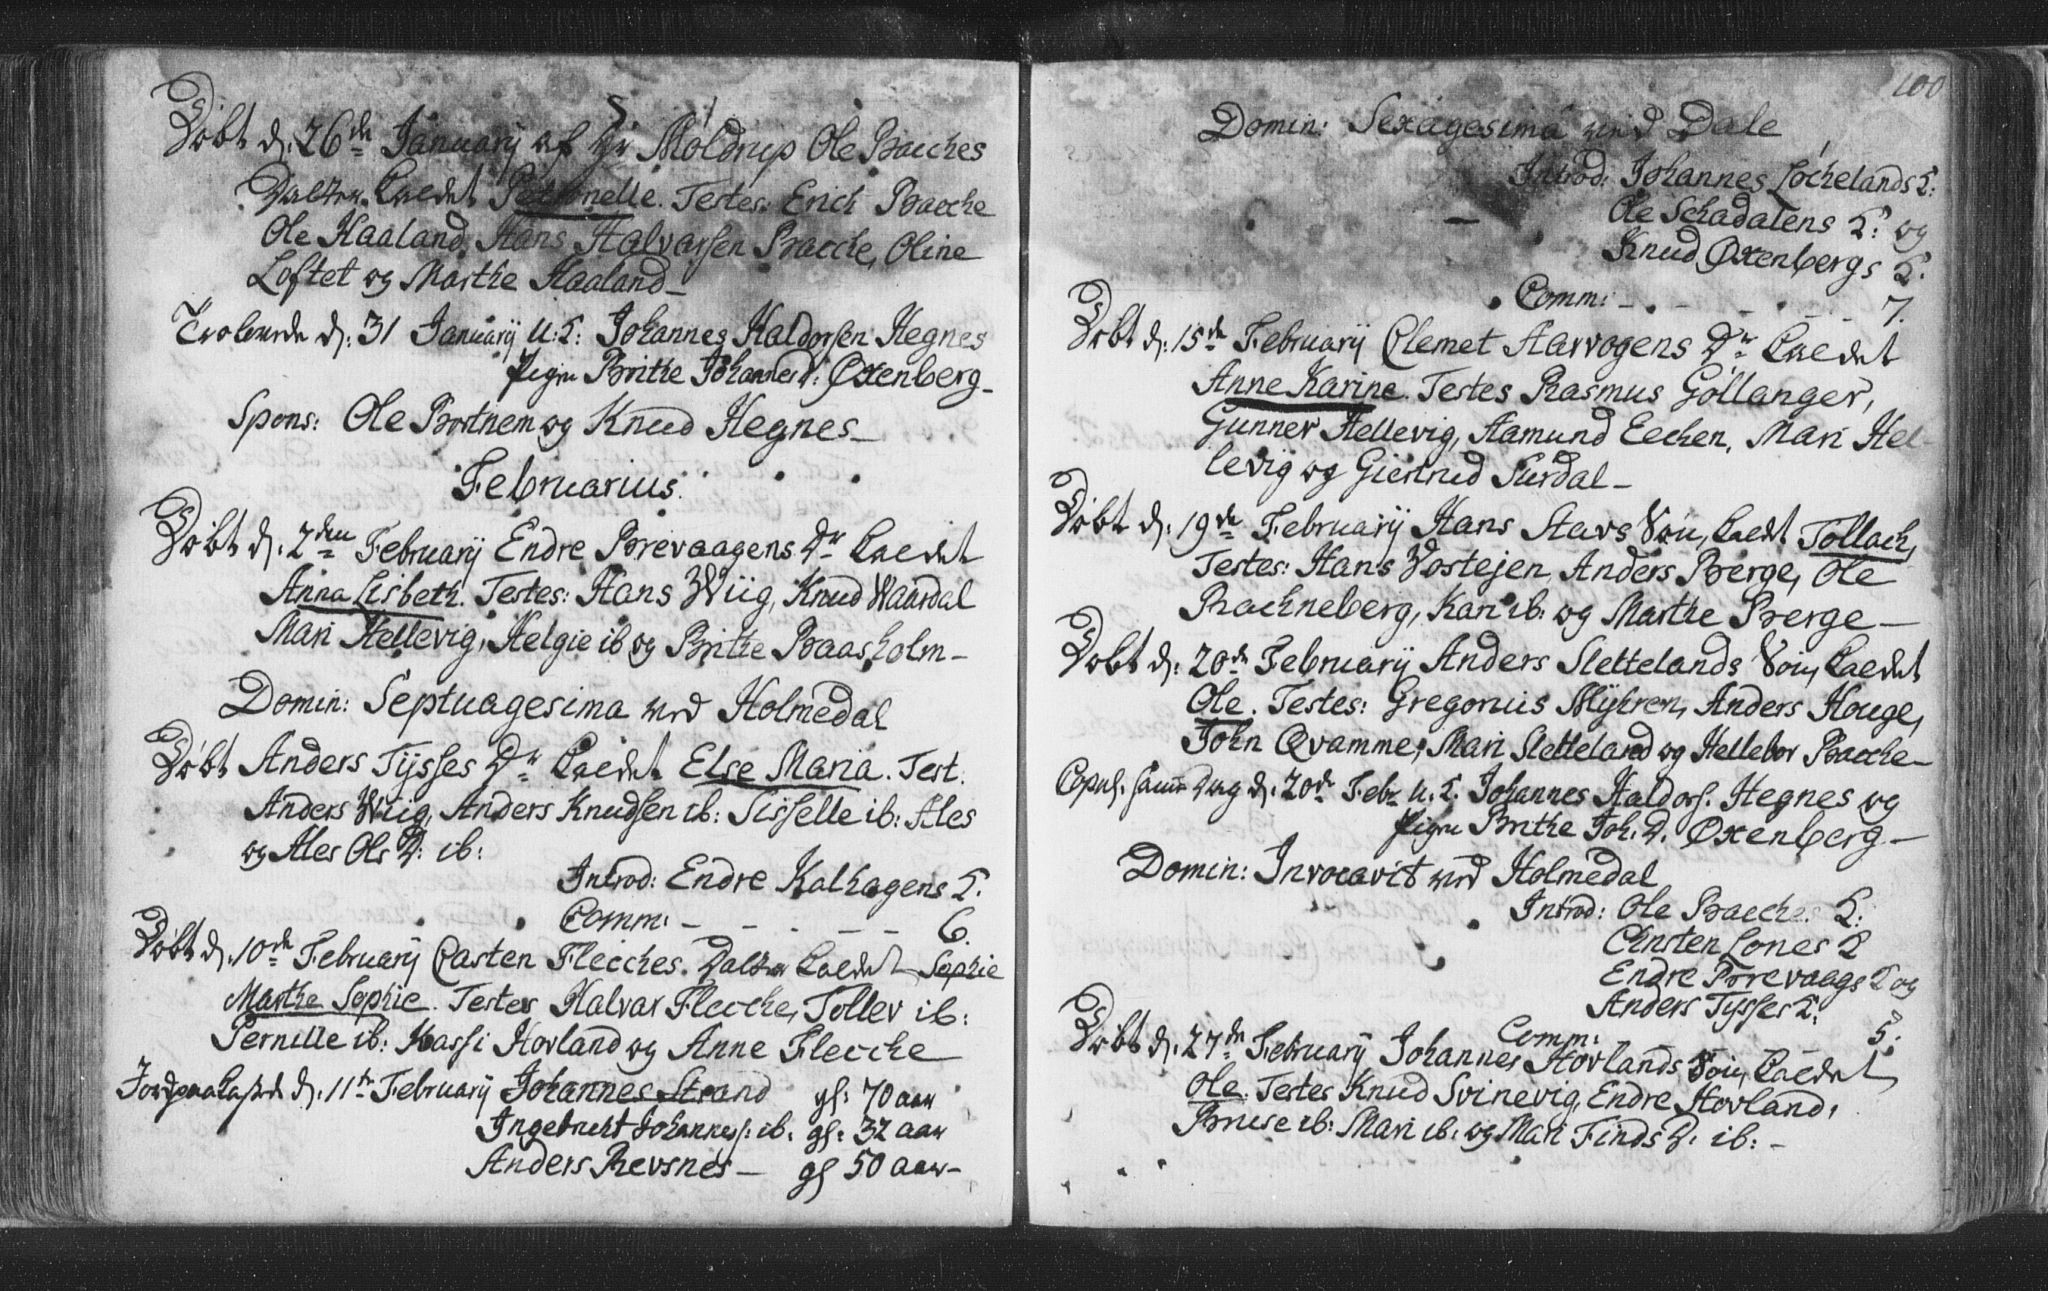 Döbt d. 26de Januarij af Hr Moldrup Ole Bacches
Datter Caldet Petronelle. Testes: Erich Bacche
Ole Haaland, Hans Halvarsen Bacche, Oline
Loftet og Marthe Haaland_
Trolovede d: 31 Januarij U: K: Johannes Haldorsen Hegnes
Pigen Brithe Johannesd: Øxenberg_
Spons: Ole Bortnem og Knud Hegnes_
Februarius.
Döbt d. 2den Februarij Endre Brevaagens Dr Caldet
Anna Lisbeth. Testes: Hans Wiig, Knud Waardal
Mari Hellevig, Helgie ib og Brithe Baasholm_
Domin: Septuagesima ved Holmedal
Döbt Anders Tysses Dr Caldet Else Maria. Test.
Anders Wiig, Anders Knudsen ib: Sisselle ib: Ales
og Ales Ols D: ib:
Introd: Endre Kalhagens K.
Comm: - - - - - 6.
Döbt d. 10de Februarij Casten Flecches. Datter Caldet Sophie
Marthe Sophie. Testes Halvar Flecche, Tollev ib:
Pernille ib: Kassi Hovland og Anne Flecche
Jordpaakastede d. 11te Februarij Johannes Strand gl: 70 aar
Ingebrecht Johanness: ib. gl: 32 aar
Anders Revsnes_ gl 50 aar_
100
Domin: Sexagesima ved Dale
Introd: Johannes Löchelands K:
Ole Schadalens K: og
Knud Øxenbergs K.
Comm: - - - - - 7.
Döbt d: 15de Februarij Clemet Aarvogens Dr Caldet
Anne Karine. Testes Rasmus Göllanger,
Gunner Hellevig, Aamund Eechen, Mari Hel-
levig og Giertrud Surdal_
Döbt d. 19de Februarij Hans Stavs Søn, Caldt Tollach,
Testes: Hans Tostejen, Anders Berge, Ole
Rachneberg, Kari ib: og Marthe Berge_
Döbt d: 20de Februarij Anders Slettelands Søn, Caldet
Ole. Testes: Gregorius Myhren, Anders Houge,
John Qvamme, Mari Sletteland og Hellebor Bacche_
Copul. samme Dag d. 20de Febr U. K. Johannes Haldors. Hegnes og
Pigen Brithe Joh: D. Øxenberg_
Domin: Invocavit ved Holmedal
Introd: Ole Bacches K:
Christen Lones K
Endre Brevaags K og
Anders Tysses K:
Comm: 5.
Döbt d. 27de Februarij Johannes Hovlands Søn, Caldet
Ole. Testes Knud Svinevig, Endre Hovland,
Bruse ib: Mari ib: og Mari Finds D: ib: -